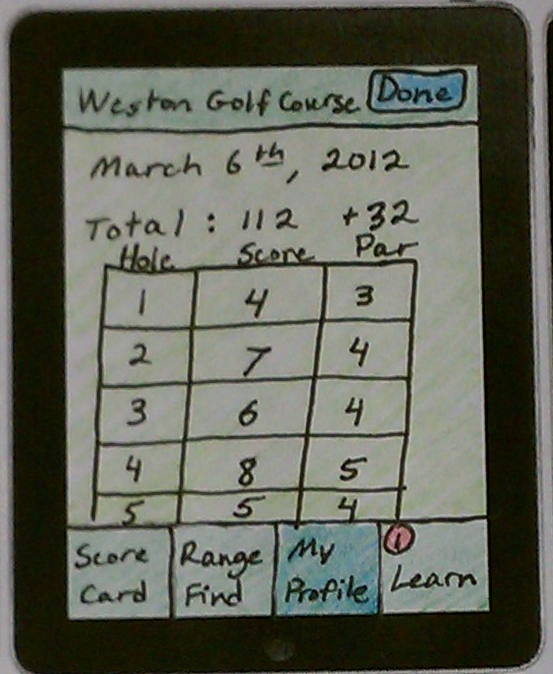 Weston Golf Course Done
March 6th, 2012
Total: 112 +32
Hole Score Par
1 4 3
2 7 4
3 6 4
4 8 5
5 5 4
Score Card
Range Find
My Profile
1
Learn